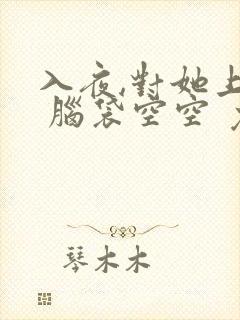 入夜,對她上
腦袋空空
琴木木